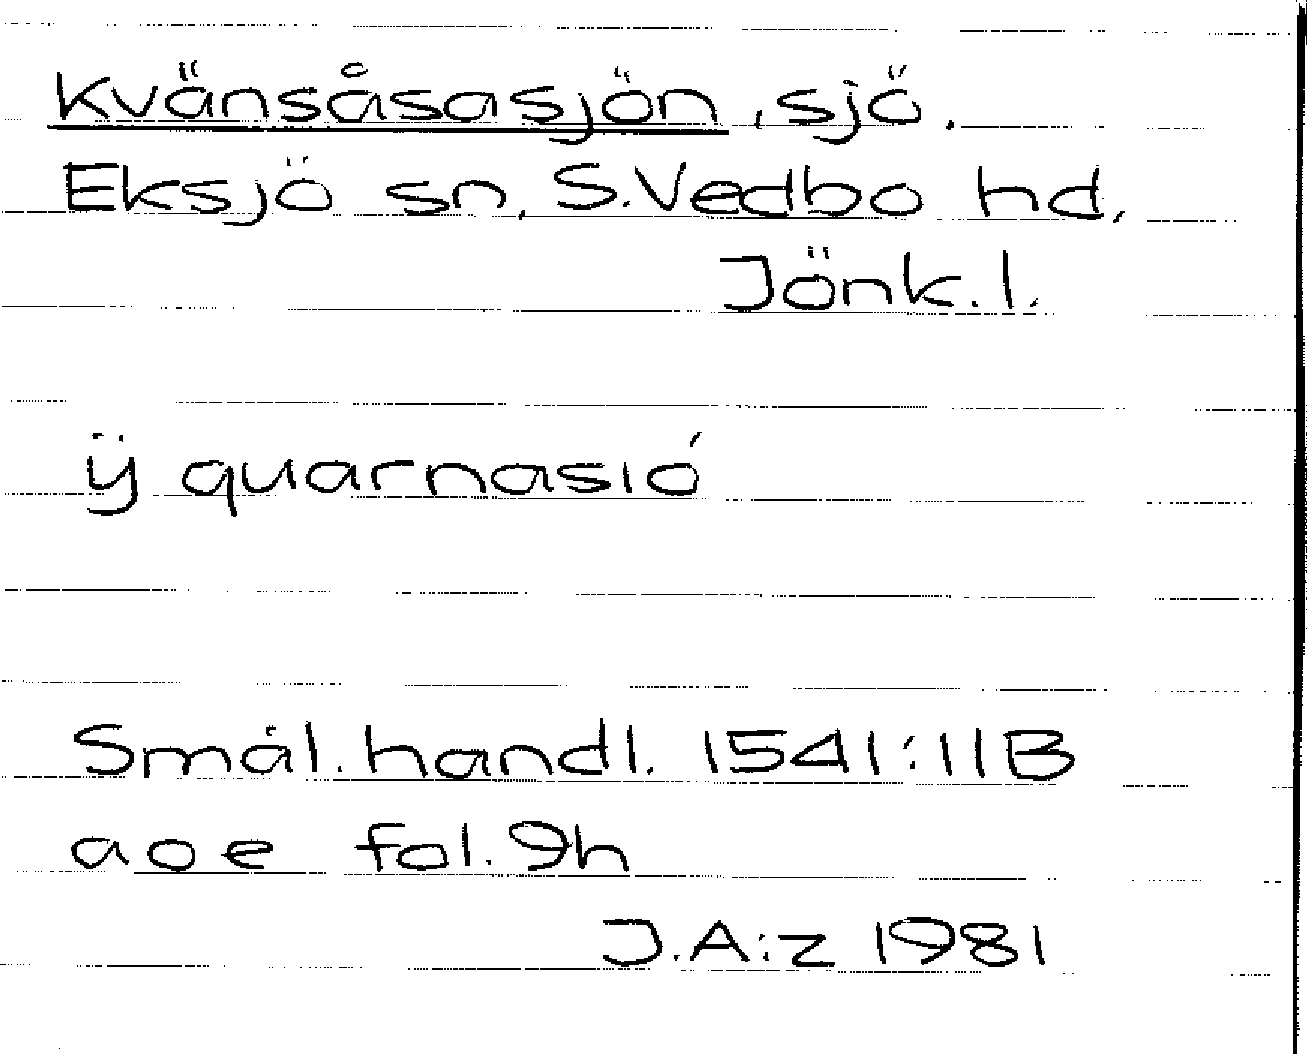 Kvänsåsasjön, sjö.
Eksjö sn, S.Vedbo hd,
Jönk.l.
ÿ quarnasió
Smål.handl. 1541:11B
aoe fol. 9h
J.A:z 1981